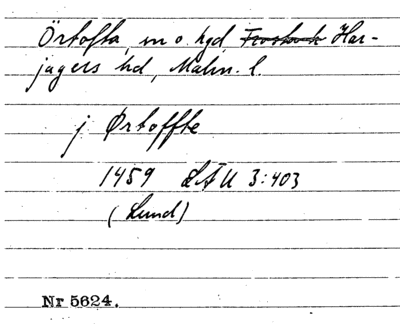 Örtofta, sn o. hgd, Frosta h Har-
jagers hd, Malm. l.
j Ørtoffte
1459 LÄU 3:403
(Lund)
Nr 5624.